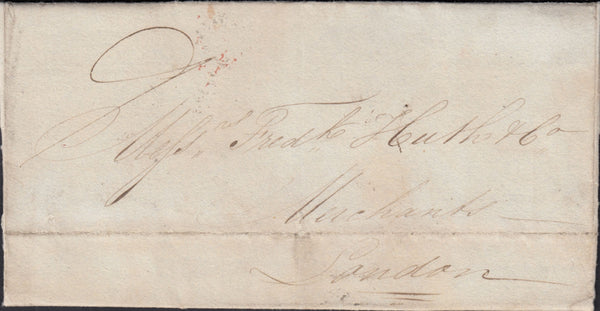 Messrs. Fredk. Huth & Co
Merchants
London